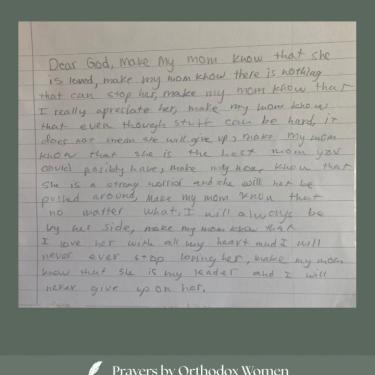 Dear God, make my mom know that she
is loved, make my mom know there is nothing
that can stop her, make my mom know that
I really apreciate her, make my mom know
that even though stuff can be hard, it
does not mean she will give up, make my mom
know that she is the best mom you
could posibly have, make my mom know that
she is a strong worrior and she will not be
pushed around, make my mom know that
no matter what, I will always be
by her side, make my mom know that
I love her with all my heart and I will
never ever stop loving her, make my mom
know that she is my leader and I will
never give up on her.
Prayers by Orthodox Women